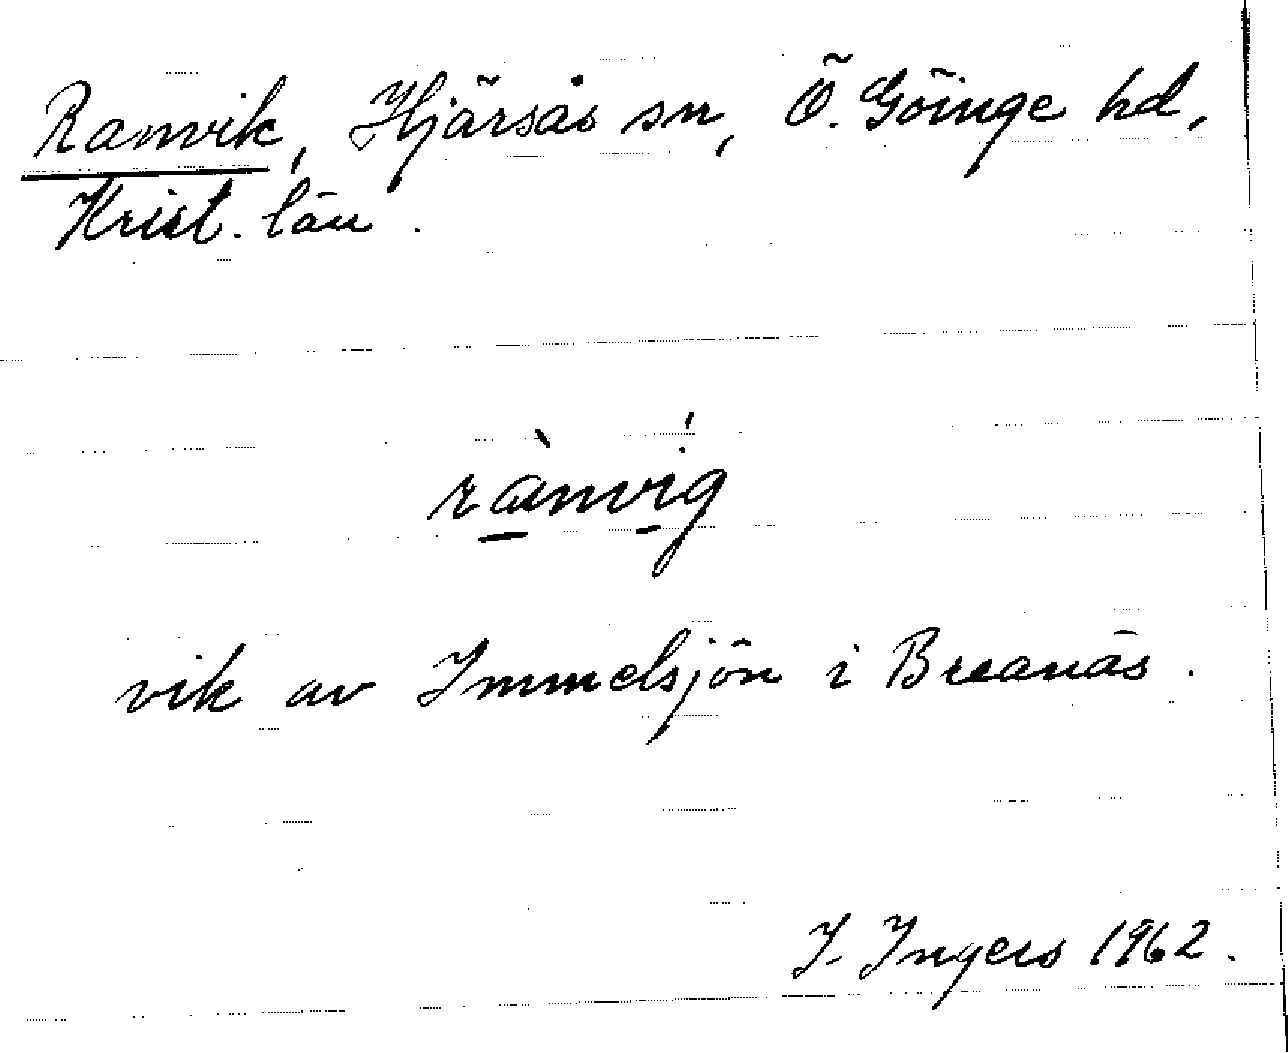 Ranvik, Hjärsås sn, Ö. Göinge hd,
Krist. län.
rànvíg
vik av Immelsjön i Breanäs.
I. Ingers 1962.